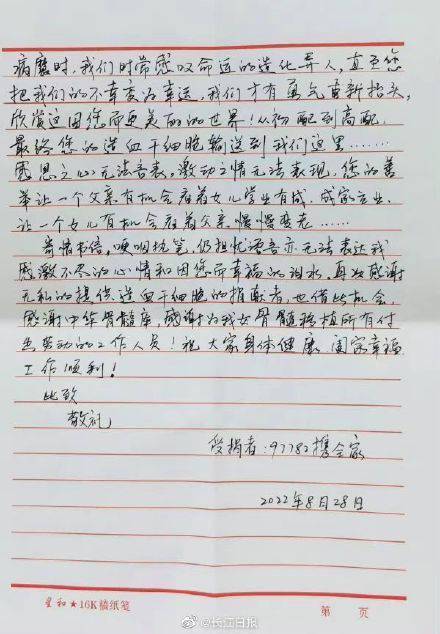 病魔时，我们时常感叹命运的造化弄人，直至您
把我们的不幸变为幸运，我们才有勇气重新抬头，
欣赏这因您而更美丽的世界！从初配到高配，
最终您的造血干细胞输送到我们这里……
感恩之心无法言表，激动之情无法表现，您的善
举让一个父亲有机会看着女儿学业有成，成家立业，
让一个女儿有机会看着父亲慢慢变老……
寄情书信，哽咽执笔，仍担忧语言亦无法表达我
感激不尽的心情和因您而幸福的泪水，再次感谢
无私的提供造血干细胞的捐献者，也借此机会，
感谢中华骨髓库，感谢为我女骨髓移植所有付
出劳动的工作人员！祝大家身体健康，阖家幸福
工作顺利！
此致
敬礼
受捐者：97782携全家
2022年8月28日
星和★16K稿纸笺
第 页
@长江日报